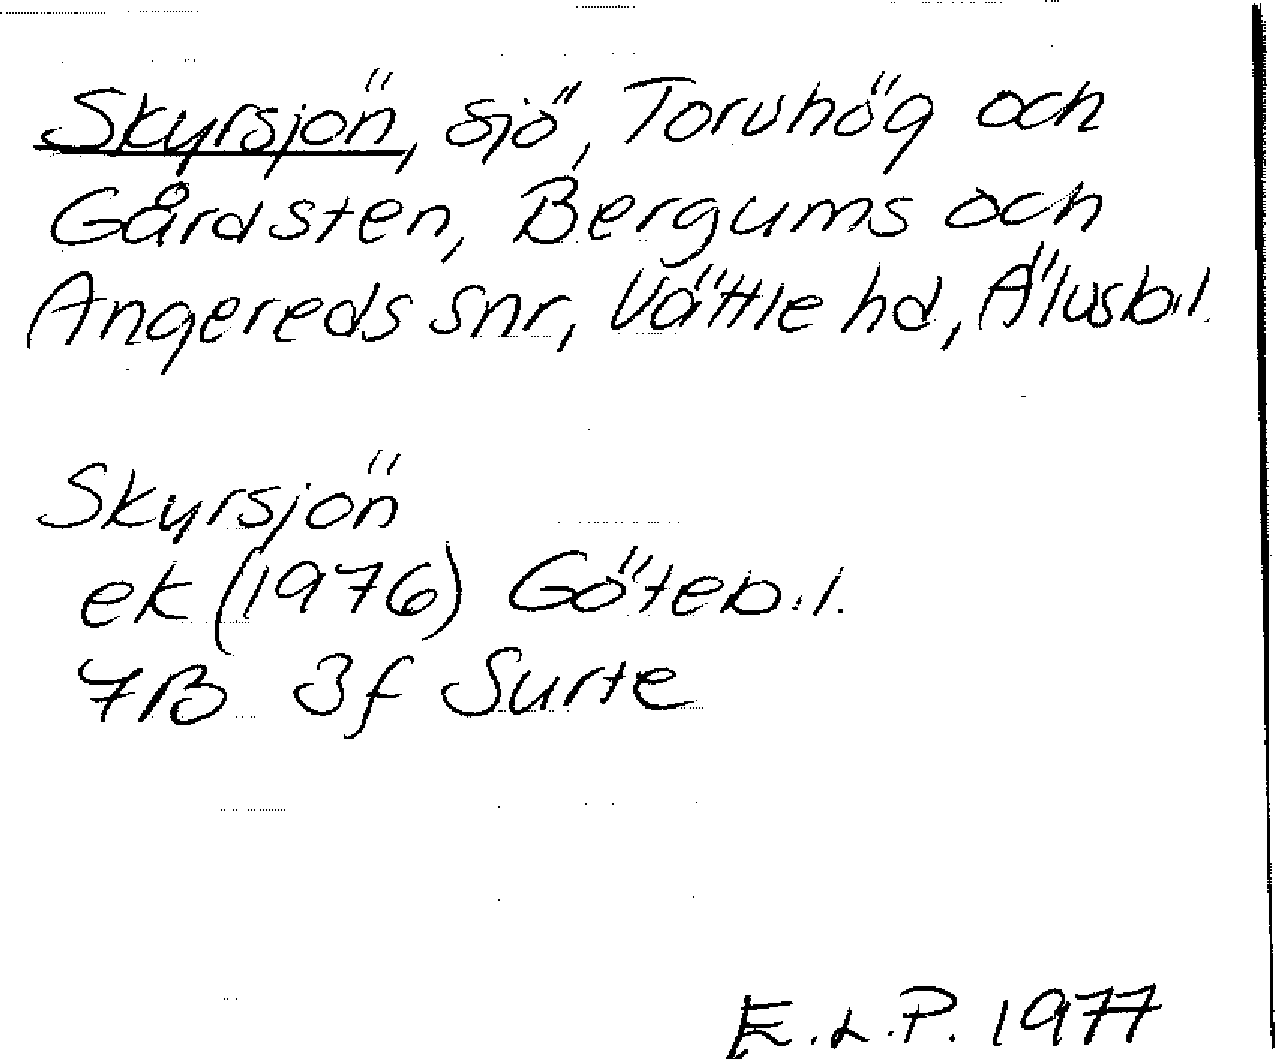 Skyrsjön, sjö, Torvhög och
Gårdsten, Bergums och
Angereds snr, Vättle hd, Älvsb.l.
Skyrsjön
ek (1976) Göteb.l.
7B 3f Surte
E.L.P. 1977